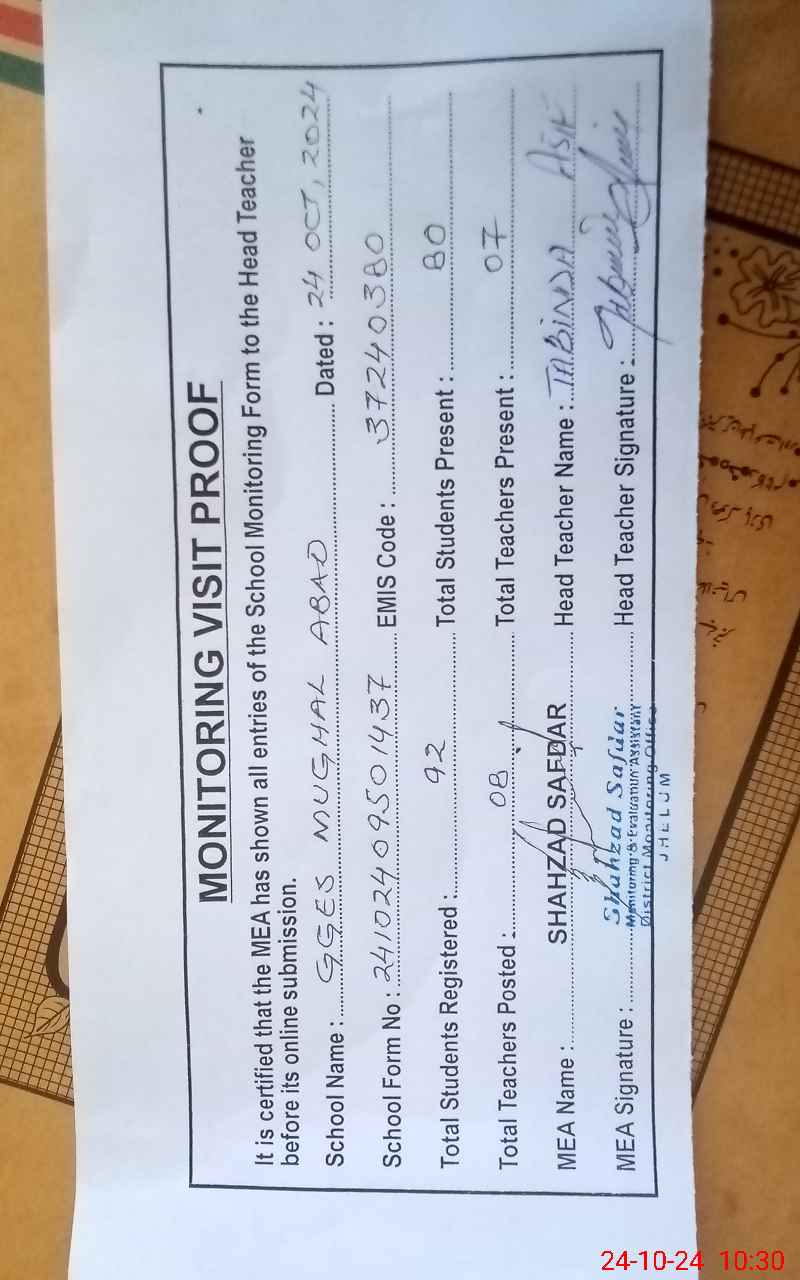 MONITORING VISIT PROOF
It is certified that the MEA has shown all entries of the School Monitoring Form to the Head Teacher
before its online submission.
School Name : GGES MUGHAL ABAD Dated : 24 OCT, 2024
School Form No : 24102409501437 EMIS Code : 37240380
Total Students Registered : 92 Total Students Present : 80
Total Teachers Posted : 08 Total Teachers Present : 07
MEA Name : SHAHZAD SAFDAR Head Teacher Name : TABINDA ASIF
MEA Signature : Head Teacher Signature :
Shahzad Safdar
Monitoring & Evaluation Assistant
District Monitoring Office
JHELUM
24-10-24 10:30